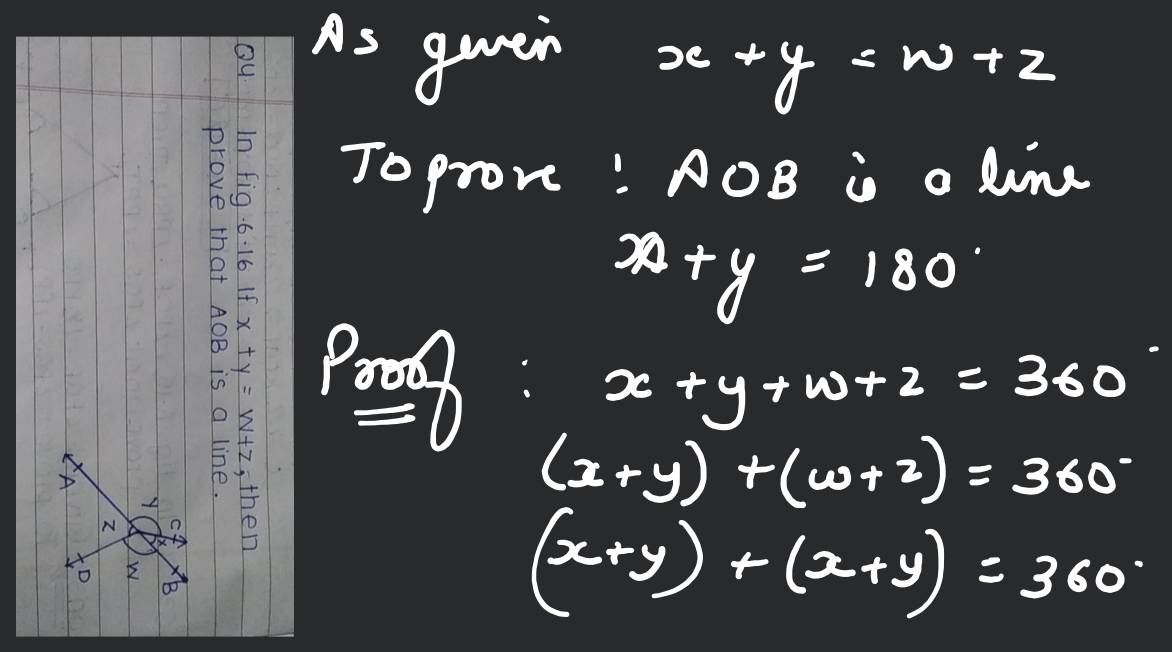 Q4. In fig.6.16 If x + y = w+z, then
prove that AOB is a line.
A
D
Z
Y
C
x
W
B
As given x + y = w + z
To prove : AOB is a line
x + y = 180°
Proof : x + y + w + z = 360°
(x+y) + (w+z) = 360°
(x+y) + (x+y) = 360°